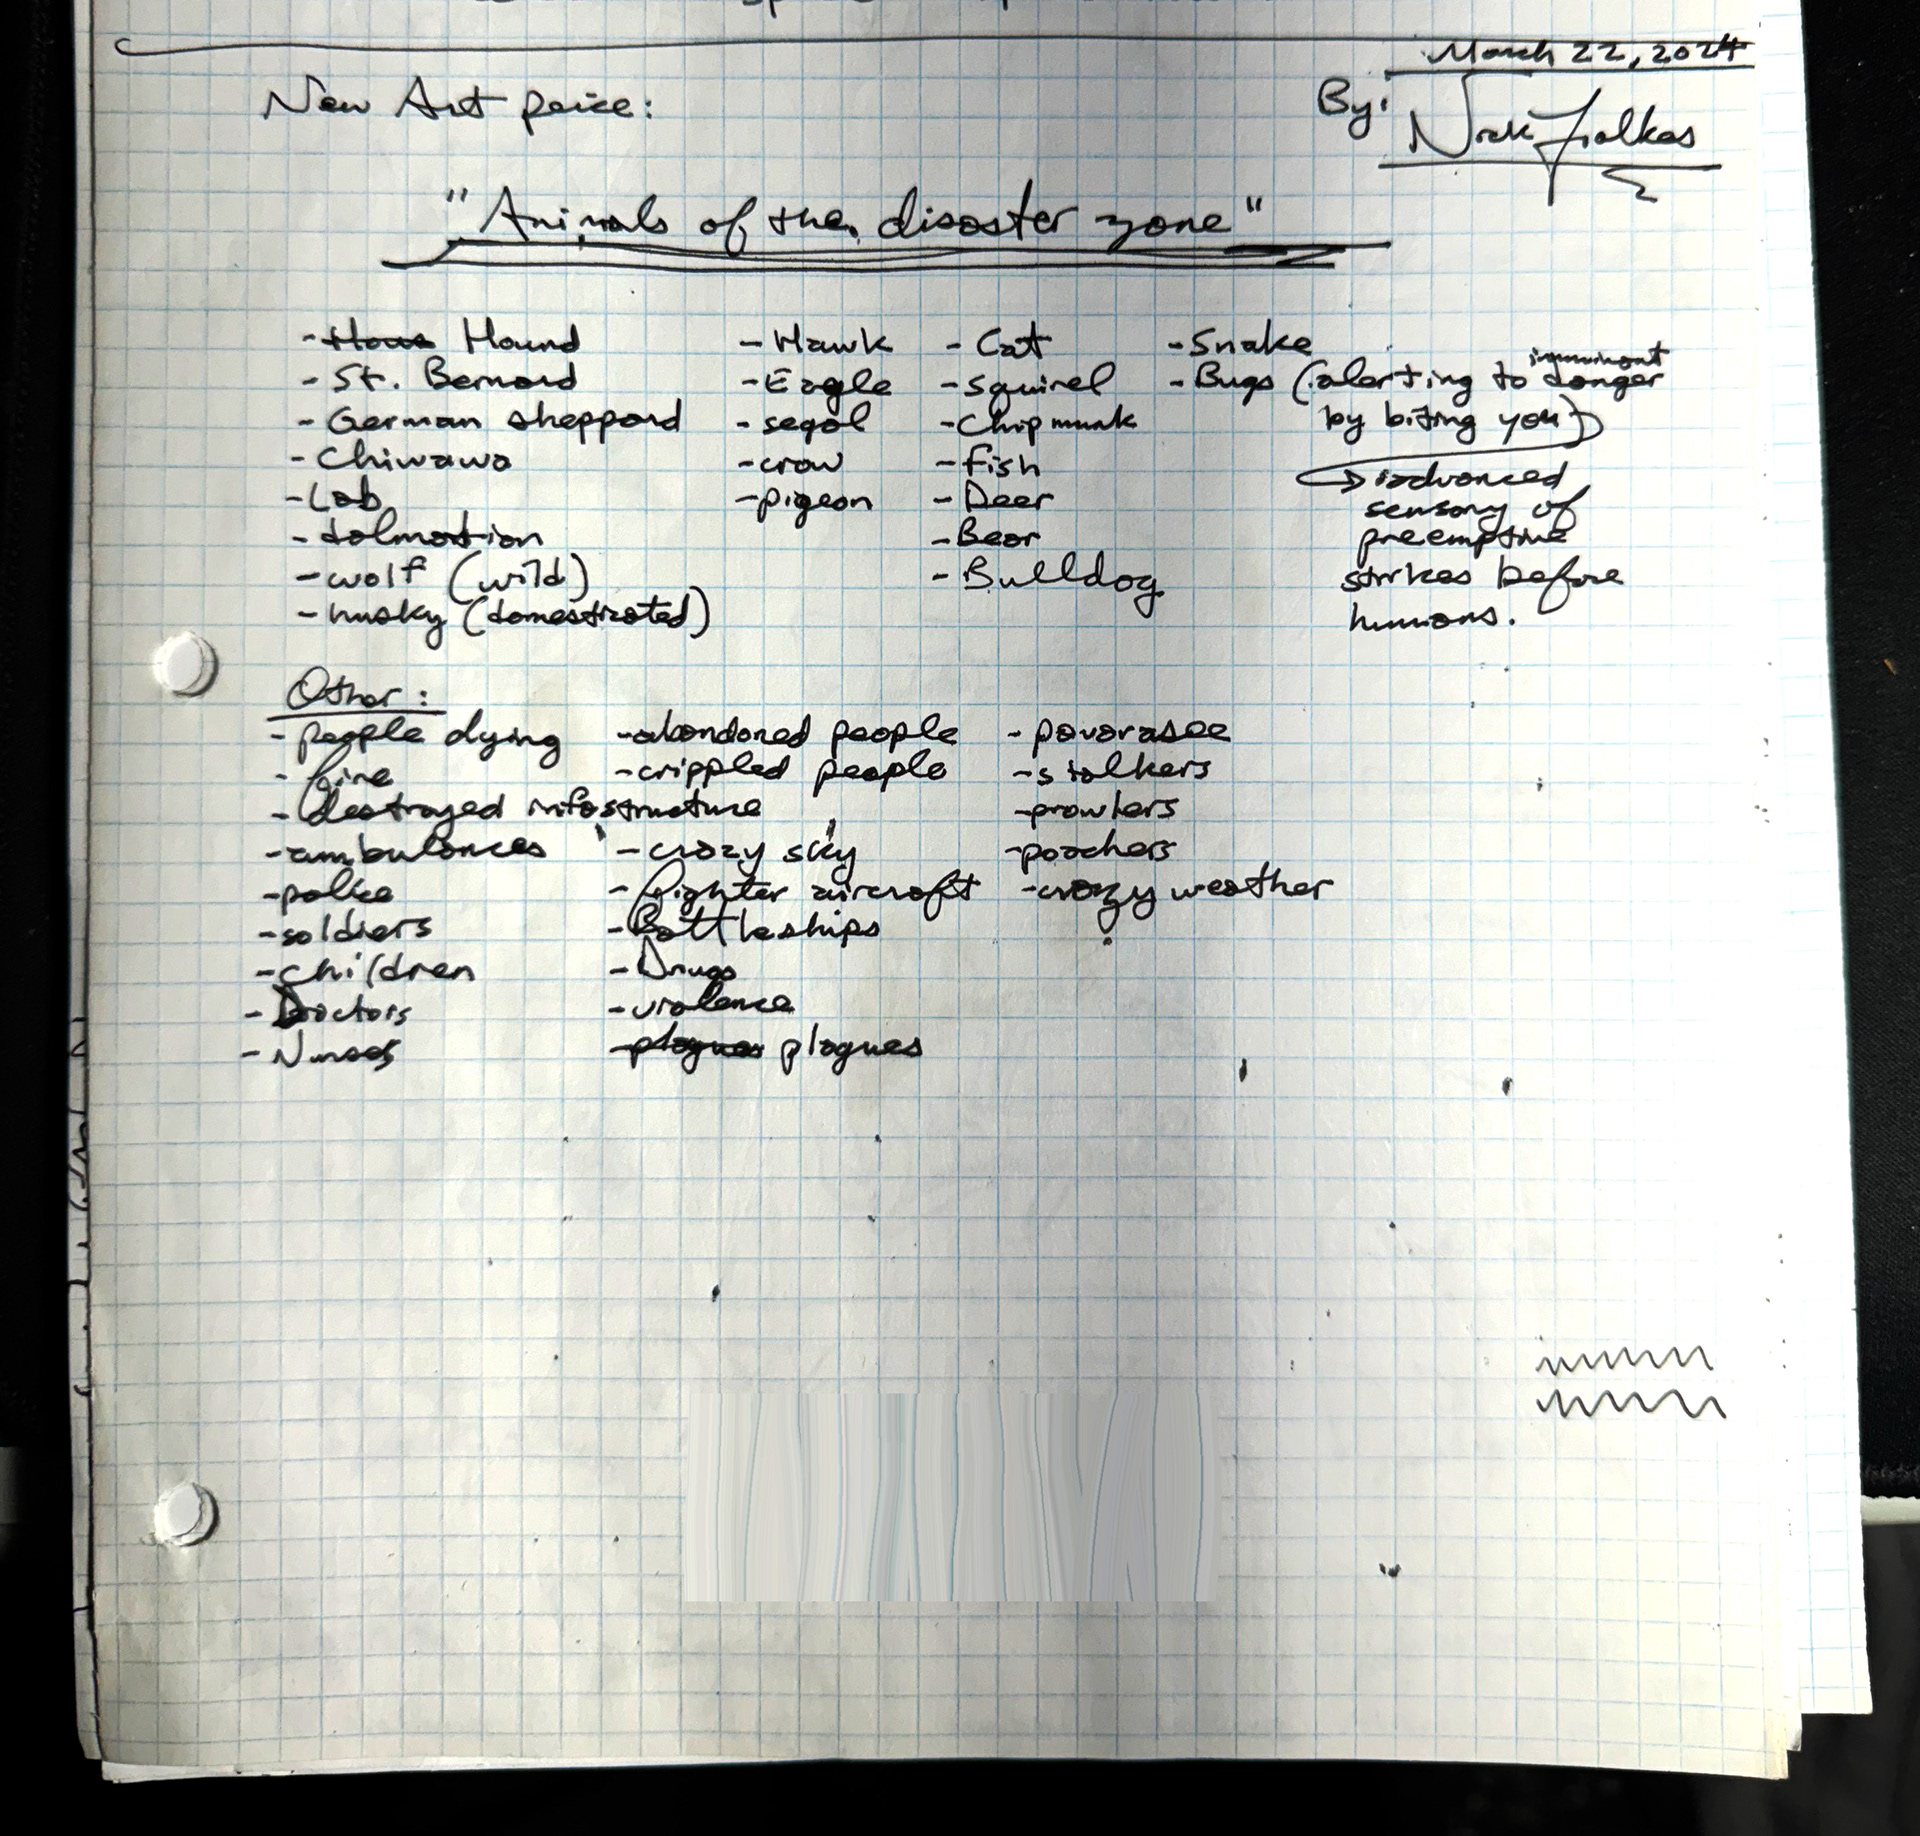 March 22, 2024
New Art peice:
By: Nick Fialkas
"Animals of the disaster zone"
- Hound
- St. Bernard
- German sheppard
- Chiwawa
- Lab
- dalmation
- wolf (wild)
- husky (domesticated)
- Hawk
- Eagle
- segal
- crow
- pigeon
- Cat
- squirel
- Chipmunk
- fish
- Deer
- Bear
- Bulldog
- Snake
- Bugs (alerting to imminent danger
by biting you)
advanced
sensory of
preemptive
strikes before
humans.
Other:
- people dying
- fire
- destroyed infostructure
- ambulances
- police
- soldiers
- children
- Doctors
- Nurses
- abandoned people
- crippled people
- crazy sky
- fighter aircraft
- Battleships
- Drugs
- violence
- plagues plagues
- pavorasee
- stalkers
- prowlers
- poachers
- crazy weather